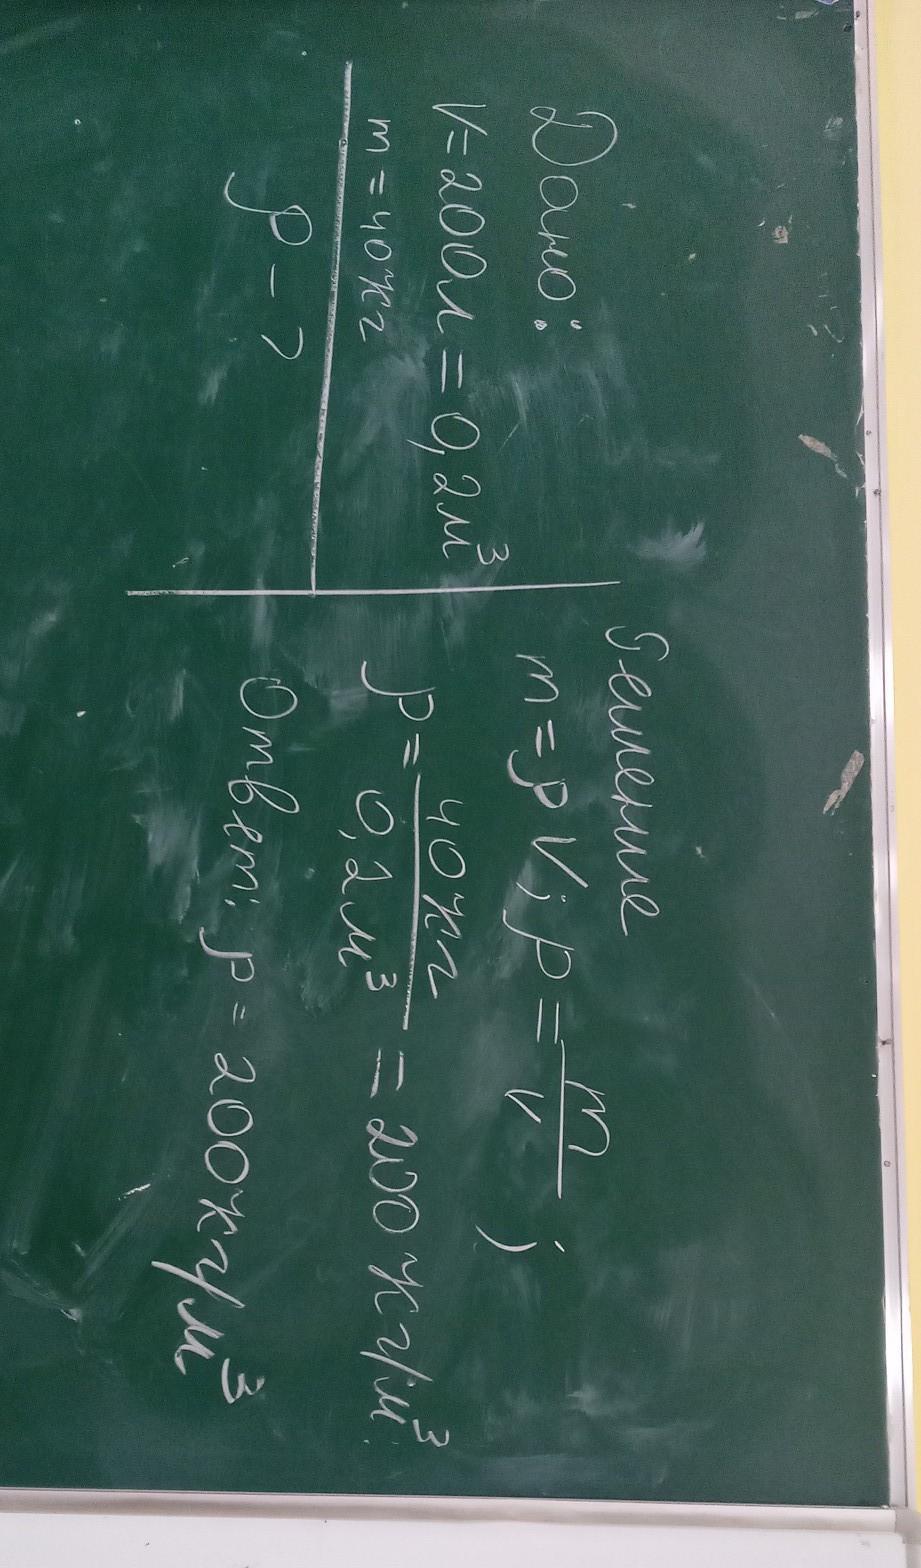 Дано:
V = 200л = 0,2м³
m = 40кг
ρ - ?
Решение
m = ρV; ρ = m/V;
ρ = 40кг/0,2м³ = 200кг/м³.
Ответ: ρ = 200кг/м³